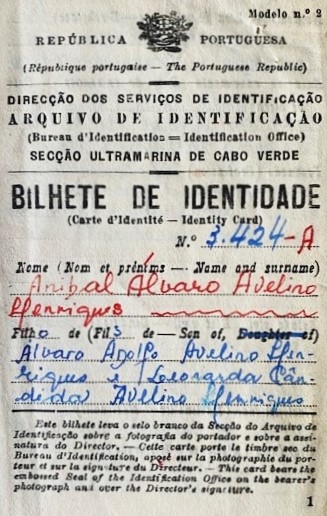 Modelo n.º 2
REPÚBLICA PORTUGUESA
(République portugaise — The Portuguese Republic)
DIRECÇÃO DOS SERVIÇOS DE IDENTIFICAÇÃO
ARQUIVO DE IDENTIFICAÇÃO
(Bureau d'Identification = Identification Office)
SECÇÃO ULTRAMARINA DE CABO VERDE
BILHETE DE IDENTIDADE
(Carte d'Identité — Identity Card)
N.º 3.424-A
Nome (Nom et prénims — Name and surname)
Anibal Alvaro Avelino
Henriques
Filho de (Fils de — Son of, Daughter of)
Alvaro Adolfo Avelino Hen-
riques e Leonarda Cân-
dida Avelino Henriques
Este bilhete leva o selo branco da Secção do Arquivo de
Identificação sobre a fotografia do portador e sobre a assi-
natura do Director. — Cette carte porte le timbre sec du
Bureau d'Identification, aposé sur la photographie du por-
teur et sur la signature du Directeur. — This card bears the
embossed Seal of the Identification Office on the bearer's
photograph and over the Director's signature.
1